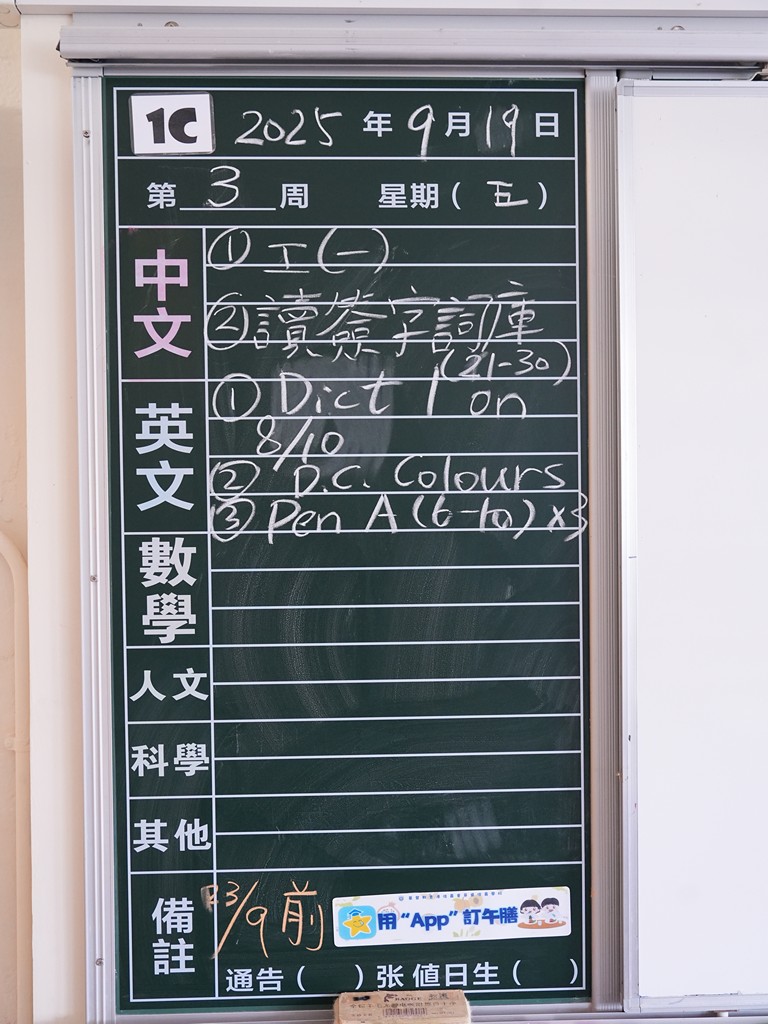 1C 2025 年 9 月 19 日
第 3 周 星期 ( 五 )
中文
① 工(一)
② 讀簽字詞庫
(21-30)
英文
① Dict 1 on
8/10
② D.C. Colours
③ Pen A (6-10) x3
數學
人文
科學
其他
備註
23/9 前
用 “App” 訂午膳
通告 ( ) 张 值日生 ( )